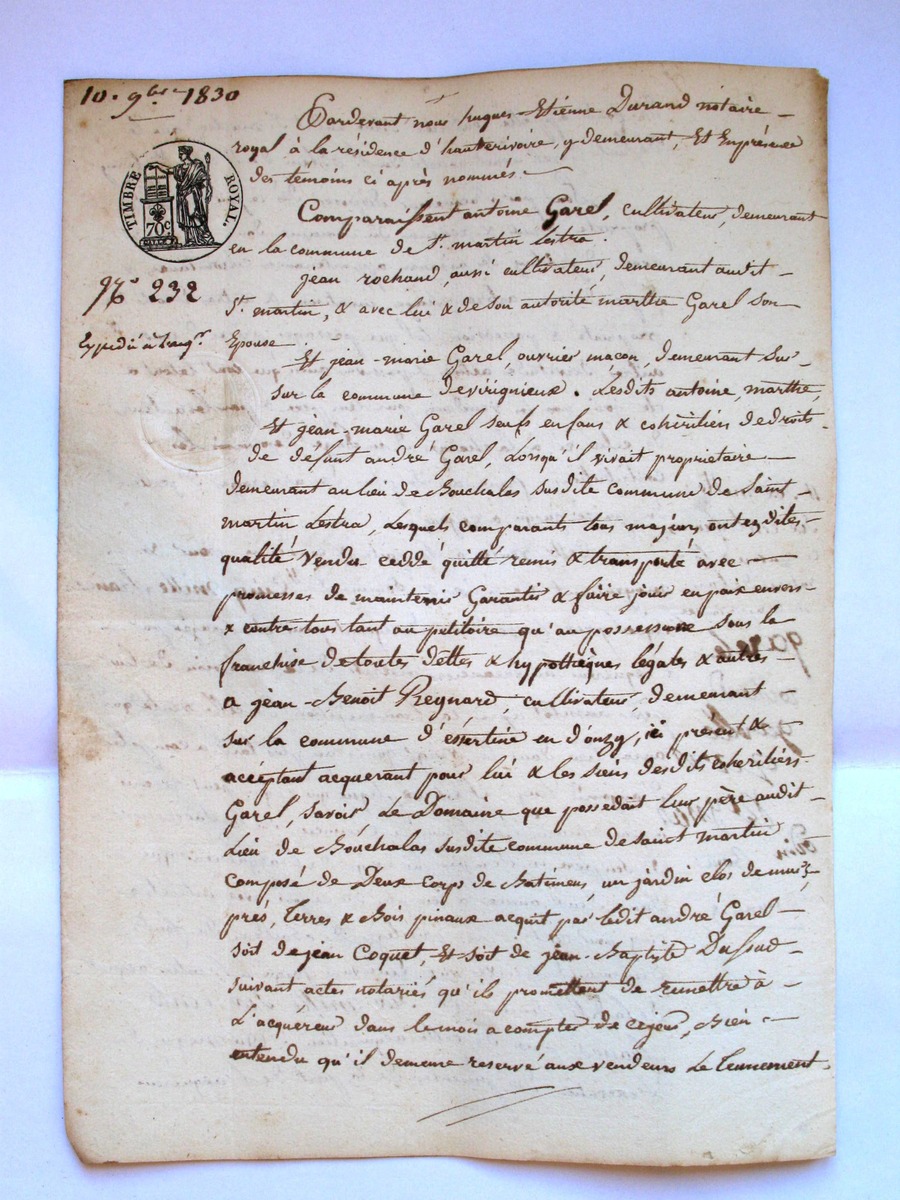 10. 9bre 1830
TIMBRE ROYAL.
70c
No 232
Expedié à l'aqr.
Pardevant nous hugues-Etienne Durand notaire
royal à la résidence d'hauterivoire, y demeurant, Et Enprésence
des témoins ci après nommés
Comparaissent antoine Garel, cultivateur, demeurant
en la commune de St. martin lestra.
jean rochand, aussi cultivateur, demeurant audit
St. martin, & avec lui & de son autorité marthe Garel son
Epouse
Et jean-marie Garel, ouvrier maçon, demeurant sur
sur la commune devirignieux. Lesdits antoine, marthe,
Et jean-marie Garel seuls enfans & cohéritiers de droits
de defunt andré Garel, Lorsqu'il vivait propriétaire
demeurant au lieu de Bouchalas susdite commune de Saint
martin Lestra, Lesquels comparants tous majeurs ont ezdites
qualité vendu ceddé quitté remis & transporté avec
promesses de maintenir Garantir & faire jouir en paix envers
& contre tous tant au petitoire qu'au possessoire sous la
franchise de toutes dettes & hypothèques légales & autres
a jean-Benoit Reynard, cultivateur, demeurant
sur la commune d'essertine en donzy, ici présent &
acceptant acquerant pour lui & les siens desdits cohéritiers
Garel, savoir Le Domaine que possedait leur père audit
Lieu de Bouchalas susdite commune de saint martin
composé de Deux corps de Batimens un jardin clos de murs,
prés, terres & Bois pinaux acquit par ledit andré Garel
soit de jean Coquet, Et soit de jean-Baptiste Dussud
suivant actes notariés qu'ils promettent de remettre à
L'acquéreur dans le mois a compter de cejour, Bien
entendu qu'il demeure reservé aux vendeurs Le tennement